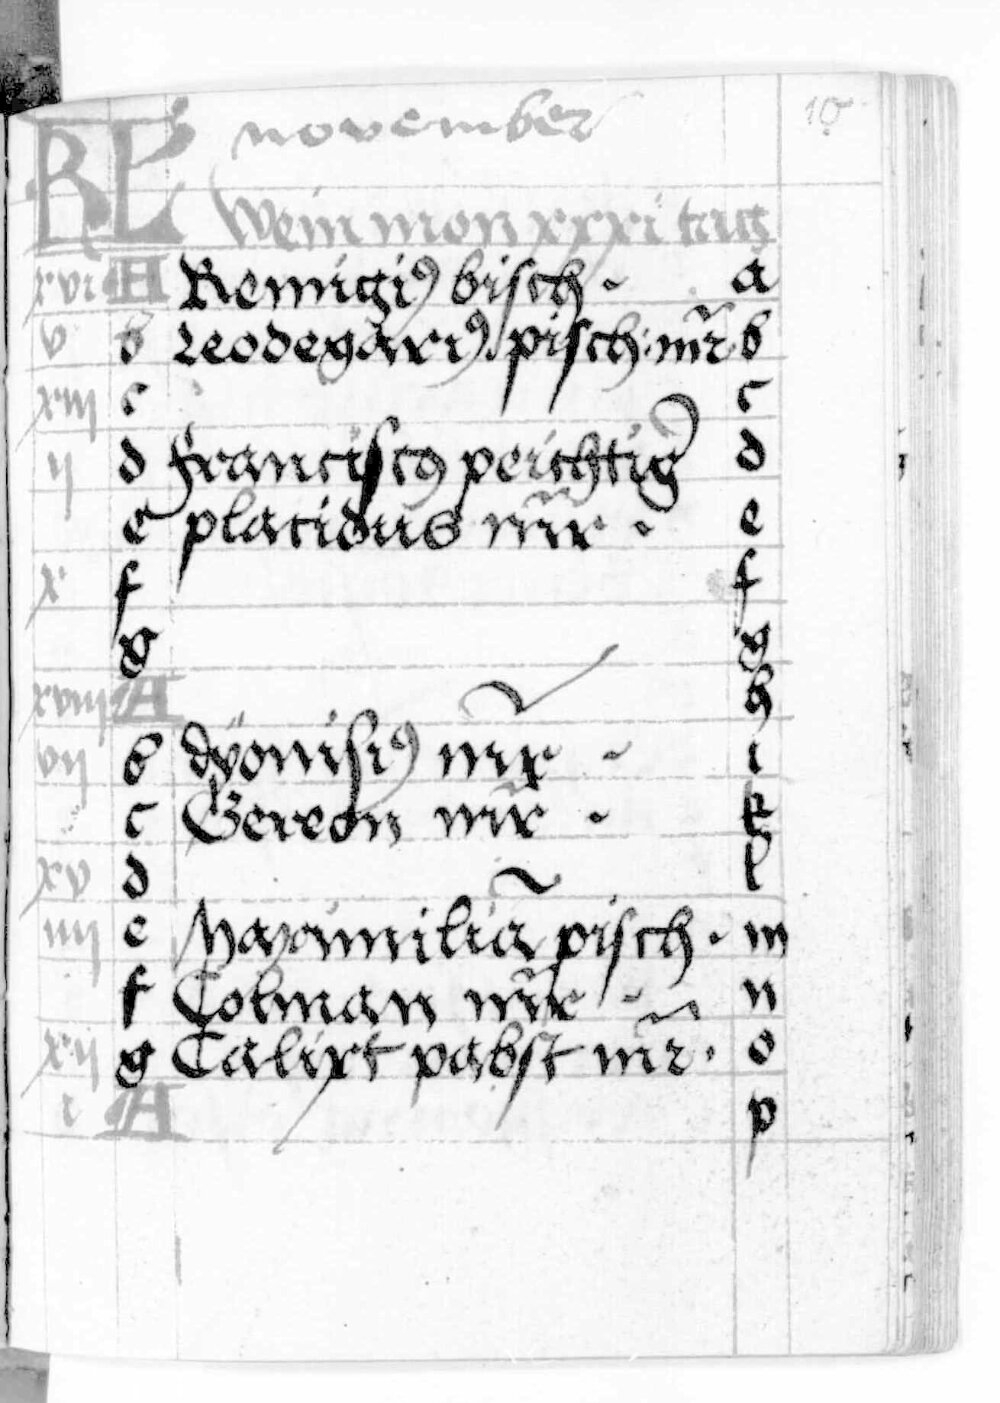 10
KL november
Weinmon xxxi tag
xvi A Remigi9 bisch. a
v b Leodegari9. pisch. mr b
xiii c c
ii d Franciscus peichtig d
e placidus mr. e
x f f
g g
xviii A h
vii b dyonisi9 mr. i
c Gereon mr. k
xv d l
iiii e Maximilian pisch. m
f Colman mr. n
xii g Calixt pabst mr. o
i A p